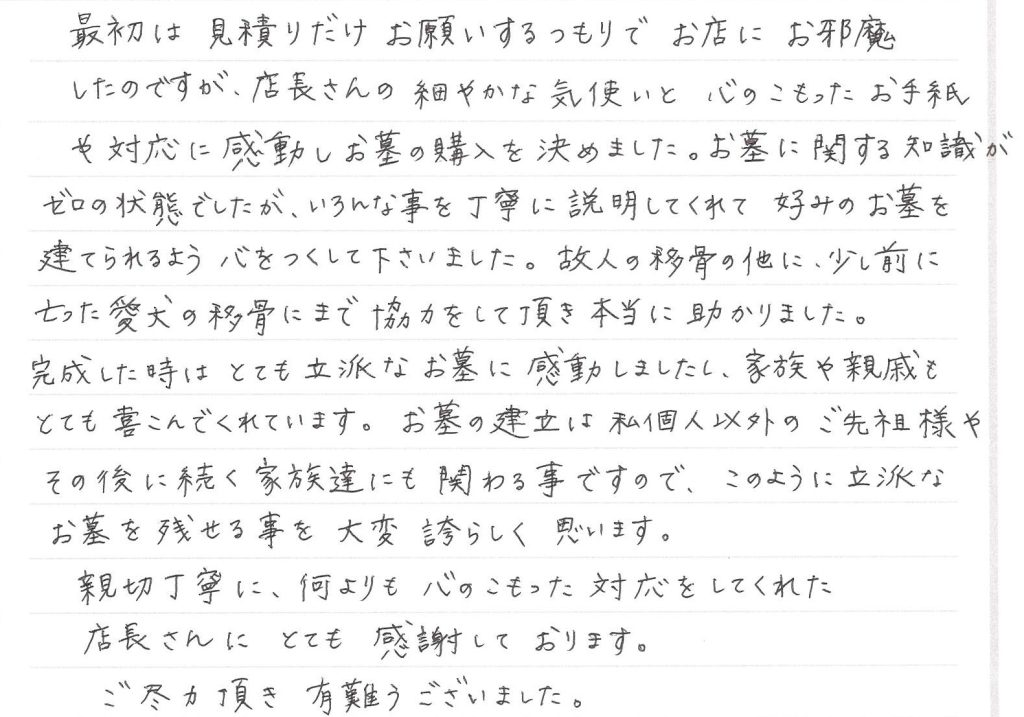 最初は見積りだけお願いするつもりでお店にお邪魔
したのですが、店長さんの細やかな気使いと心のこもったお手紙
や対応に感動しお墓の購入を決めました。お墓に関する知識が
ゼロの状態でしたが、いろんな事を丁寧に説明してくれて好みのお墓を
建てられるよう心をつくして下さいました。故人の移骨の他に、少し前に
亡った愛犬の移骨にまで協力をして頂き本当に助かりました。
完成した時はとても立派なお墓に感動しましたし、家族や親戚も
とても喜こんでくれています。お墓の建立は私個人以外のご先祖様や
その後に続く家族達にも関わる事ですので、このように立派な
お墓を残せる事を大変誇らしく思います。
親切丁寧に、何よりも心のこもった対応をしてくれた
店長さんにとても感謝しております。
ご尽力頂き有難うございました。